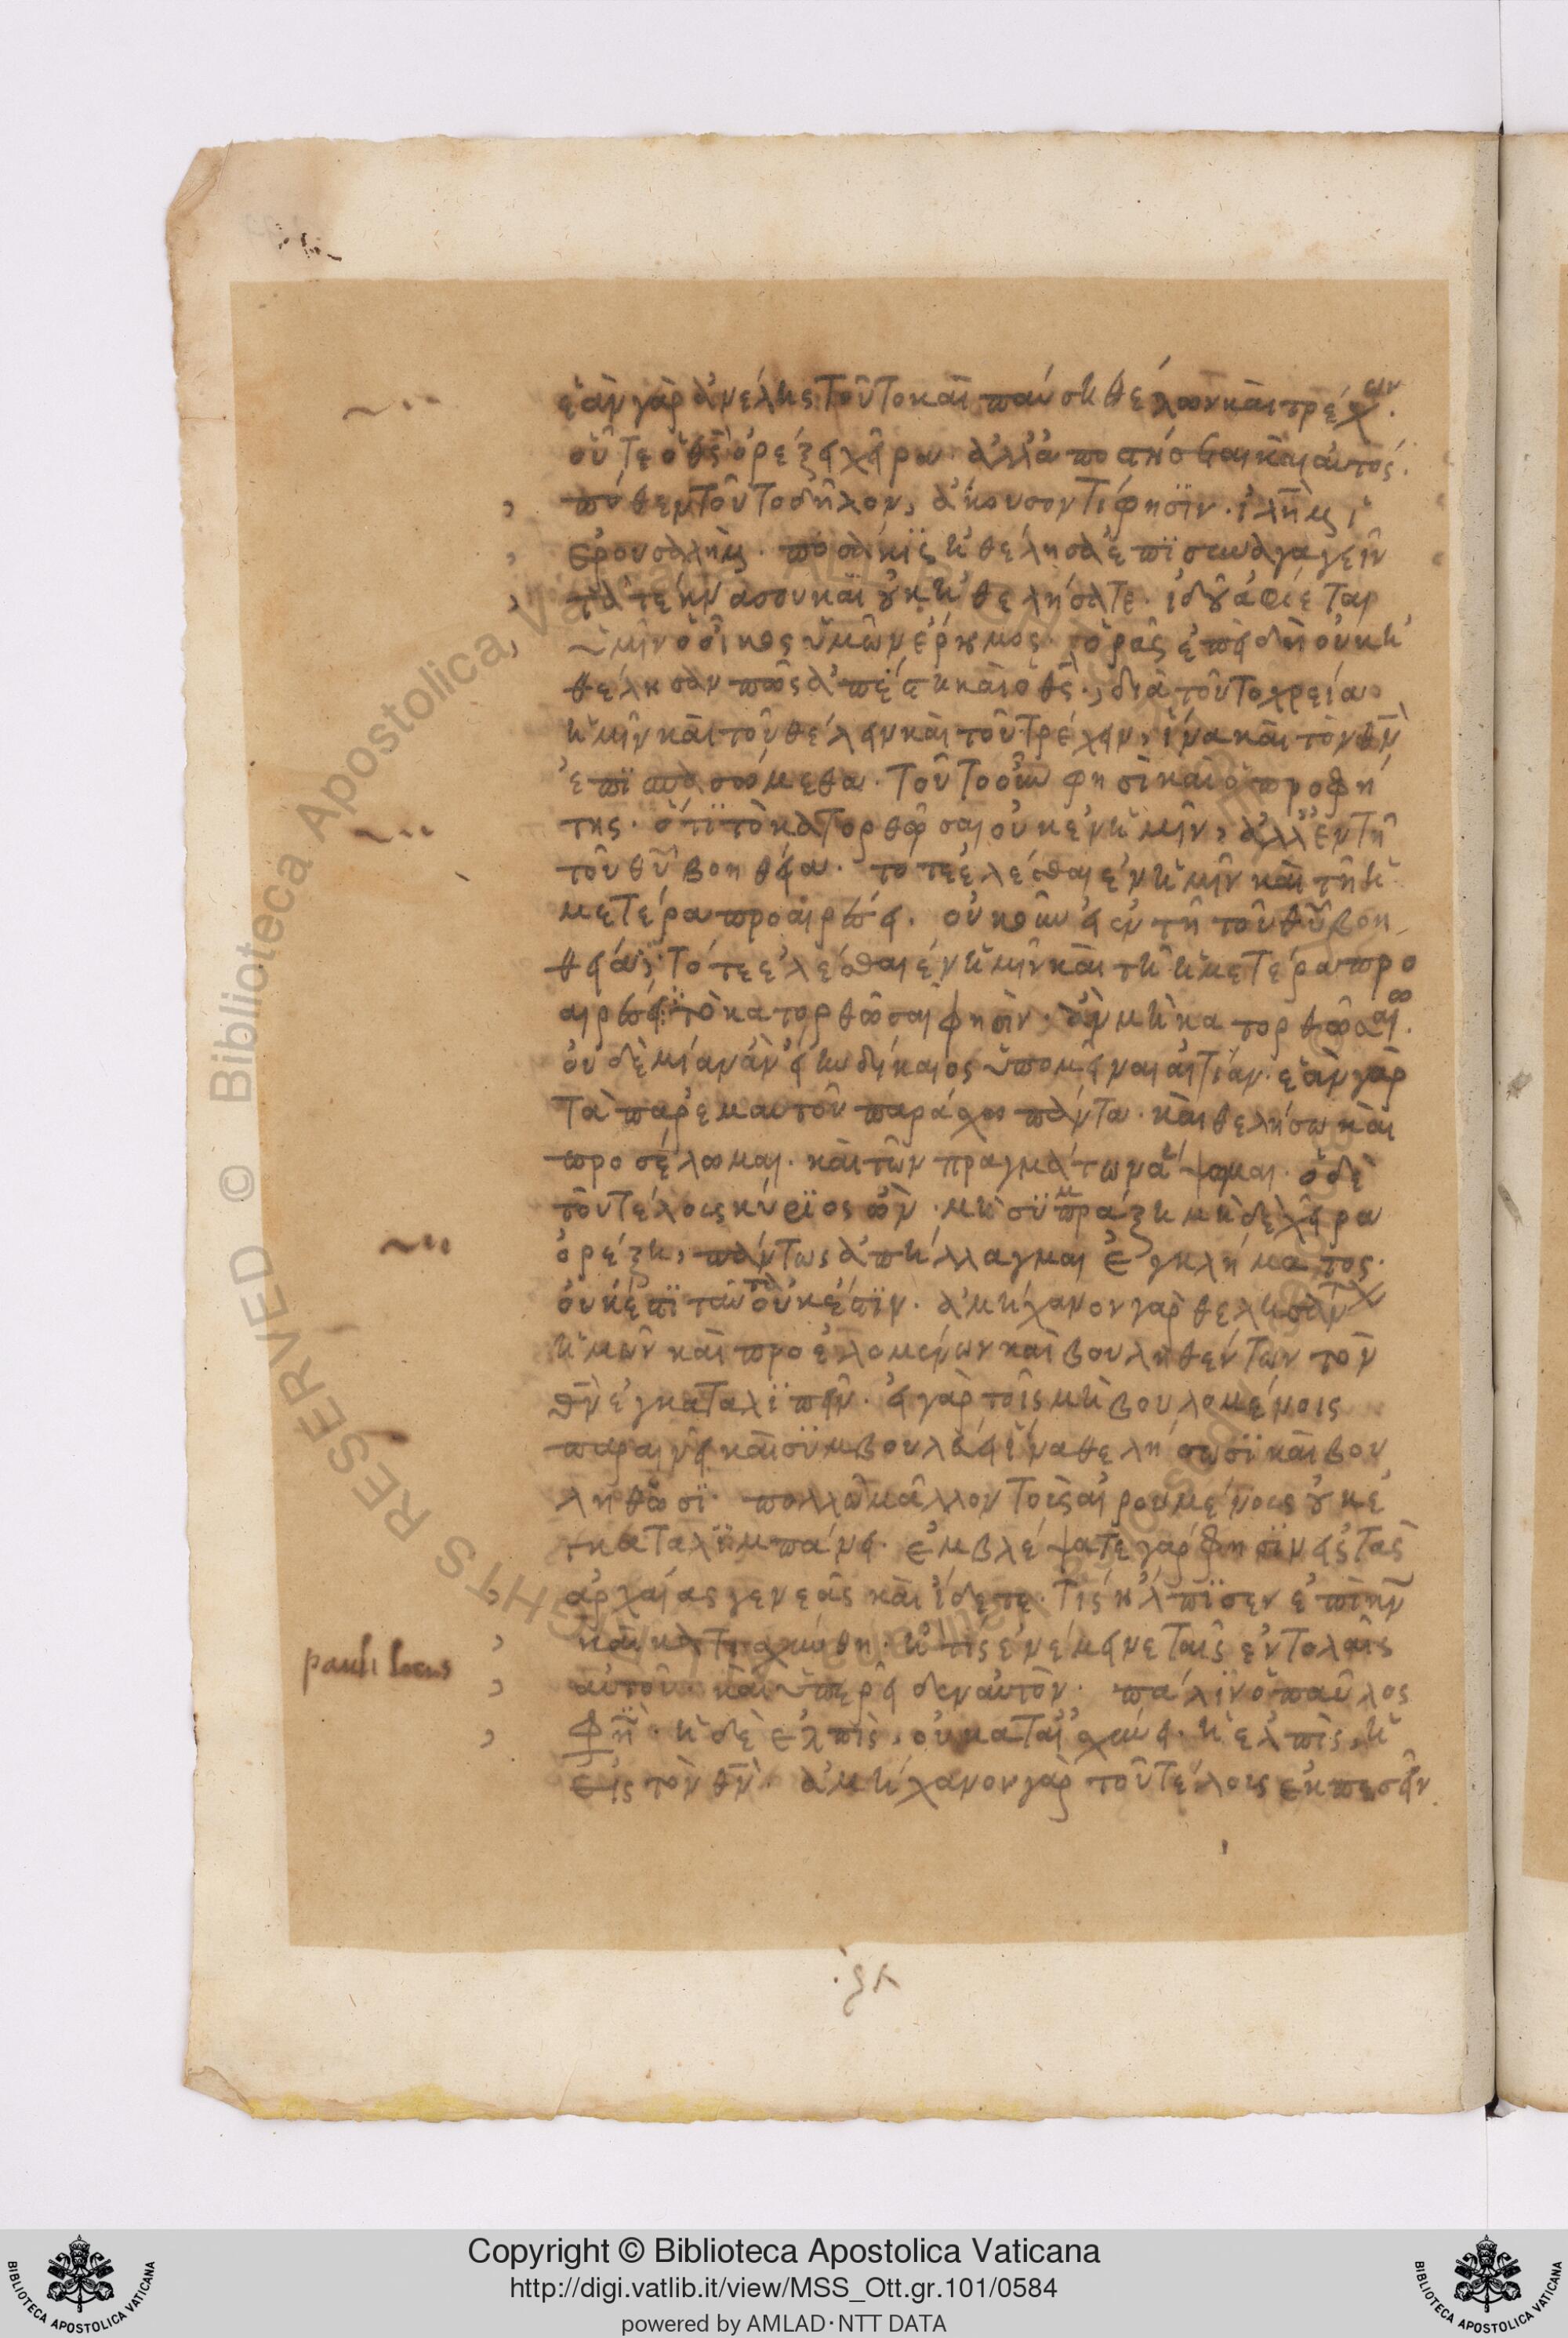 ἐὰν γὰρ ἀμελῆς τοῦτο καὶ παύση θέλων καὶ τρέχειν.
οὔτε ὁ θς ὀρέξει χεῖρα ἀλλὰ ἀποστήσεται καὶ αὐτός.
πόθεν τοῦτο δῆλον, ἄκουσον τί φησϊν. ἱλῆμ ἱ
ερουσαλὴμ. ποσάκϊς ἠθέλησα ἐπϊσυναγαγεῖν
τὰ τέκνα σου καϊ οὐκ ἠθελήσατε. ἰδοὺ ἀφίεται
ὑμῖν ὁ οἶκος ὑμῶν ἔρημος. ὁρᾶς ἐπειδὴ οὐκ ἠ
θέλησαν πῶς ἀπέστη καὶ ὁ θς., διὰ τοῦτο χρεία
ἡμῖν καὶ τοῦ θέλειν καὶ τοῦ τρέχειν, ἵνα καὶ τὸν θν
ἐπϊσπασώμεθα. τοῦτο οὖν φησὶ καὶ ὁ προφή
της. ὅτϊ τὸ κατορθῶσαι οὐκ ἐν ἡμῖν, ἀλλ' ἐν τῆ
τοῦ θυ βοηθεία. τὸ τε ἑλέσθαι ἐν ἡμῖν καὶ τῆ ἡ
μετέρα προαιρέσει. οὐκοῦν εἰ ἐν τῆ τοῦ θυ βοη
θεία, τό τε ἑλέσθαι ἐν ἡμῖν καὶ τῆ ἡμετέρα προ
αιρέσει τὸ κατορθῶσαι φησὶν. ἂν μὴ κατορθώσω
οὐδεμίαν ἂν εἴην δίκαιος ὑπομεῖναι αἰτίαν. ἐὰν γὰρ
τὰ παρ' ἐμαυτοῦ παράσχω πάντα. καὶ θελήσω καὶ
προσέλωμαι. καὶ τῶν πραγμάτων ἅψωμαι. ὁ δὲ
τοῦ τέλους κύρϊος ὢν. μὴ συμπράξη μηδὲ χεῖρα
ὀρέξη, πάντως ἀπήλλαγμαι ἐγκλήματος.
οὐκ ἔστϊ ταῦτα οὐκ ἔστϊν. ἀμήχανον γὰρ θελησάντων
ἡμῶν καὶ προελομένων καὶ βουληθέντων τὸν
θν ἐγκαταλϊπεῖν. εἰ γὰρ τοῖς μὴ βουλομένοις
παραινεῖ καὶ συμβουλεύει ἵνα θελήσωσϊ καὶ βου
ληθῶσϊ. πολλῶ μᾶλλον τοὺς αἱρουμένους οὐκ ἐ
γκαταλϊμπάνει. ἐμβλέψατε γάρ φησϊν εἰς τὰς
ἀρχαίας γενεὰς καὶ ἴδετε. τίς ἤλπϊσεν ἐπὶ κν
καὶ κατησχύνθη. ἢ τίς ἐνέμεινε ταῖς ἐντολαῖς
αὐτοῦ. καὶ ὑπερεῖδεν αὐτὸν. πάλϊν ὁ παῦλος
φησϊ. ἡ δὲ ἐλπὶς, οὐ καταισχύνει. ἡ ἐλπὶς, ἡ
εἰς τὸν θν. ἀμήχανον γὰρ τοῦ τέλους ἐκπεσεῖν
pauli locus
RIGHTS RESERVED © Biblioteca Apostolica Vaticana
Copyright © Biblioteca Apostolica Vaticana
http://digi.vatlib.it/view/MSS_Ott.gr.101/0584
powered by AMLAD·NTT DATA
BIBLIOTECA APOSTOLICA VATICANA
BIBLIOTECA APOSTOLICA VATICANA